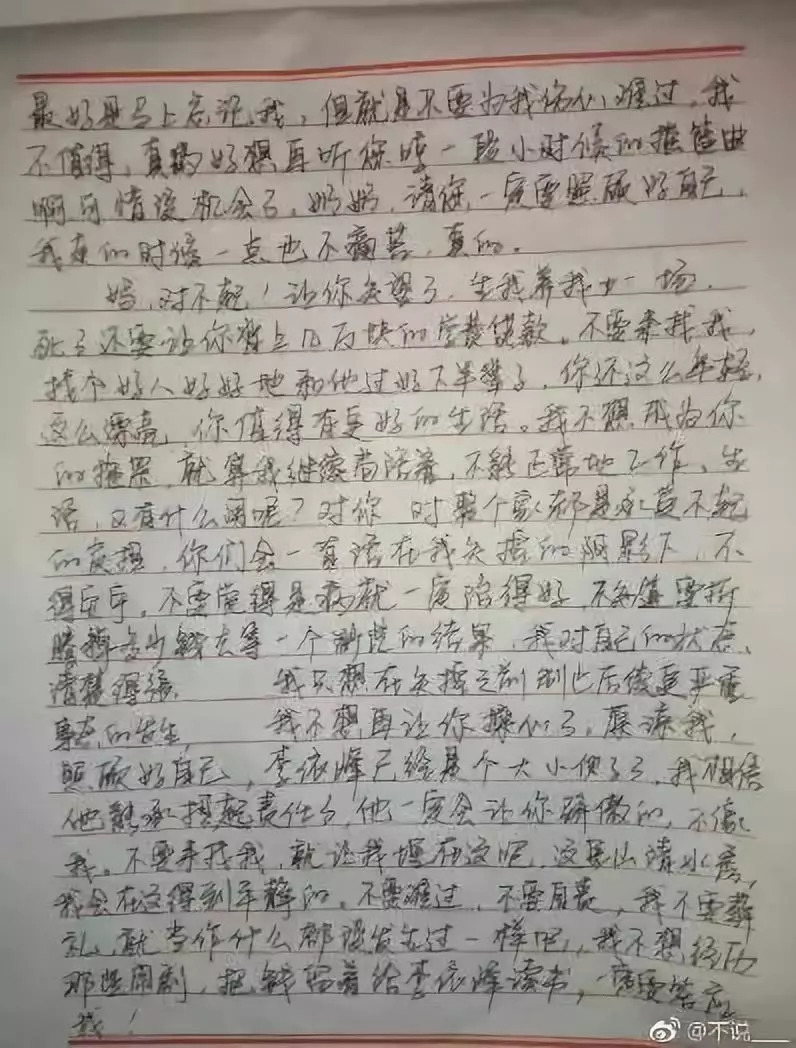 最好是马上忘记我，但就是不要为我伤心难过，我
不值得，真的好想再听你哼一段小时候的摇篮曲
啊可惜没机会了，奶奶，请你一定要照顾好自己，
我走的时候一点也不痛苦，真的。
妈，对不起！让你失望了，生我养我廿一场，
死了还要让你背上几万块的学费贷款。不要来找我，
找个好人好好地和他过好下半辈子，你还这么年轻，
这么漂亮，你值得有更好的生活。我不想成为你
的拖累，就算我继续苟活着，不能正常地工作、生
活，又有什么用呢？对你 对整个家都是承受不起
的负担，你们会一直活在我失控的阴影下，不
得安宁。不要觉得是病就一定治得好，不知道要折
腾掉多少钱去等一个渺茫的结果，我对自己的状态
清楚得很 我只想在失控之前制止后续更严重
事态的发生， 我不想再让你操心了，原谅我，
照顾好自己，李依峰已经是个大小伙子了，我相信
他能承担起责任了，他一定会让你骄傲的，不像
我。不要来找我，就让我埋在这吧，这里山清水秀，
我会在这得到平静的。不要难过，不要自丧，我不要葬
礼，就当作什么都没发生过一样吧，我不想经历
那些闹剧，把钱留着给李依峰读书，一定要答应
我！
@不说___